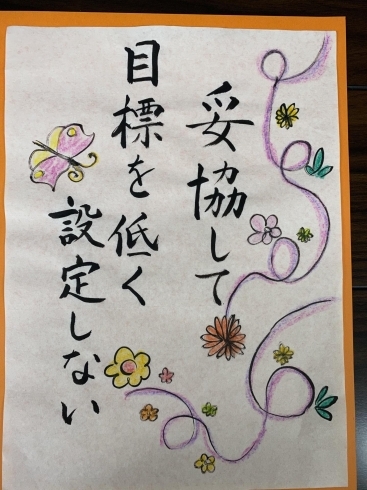 妥協して
目標を低く
設定しない